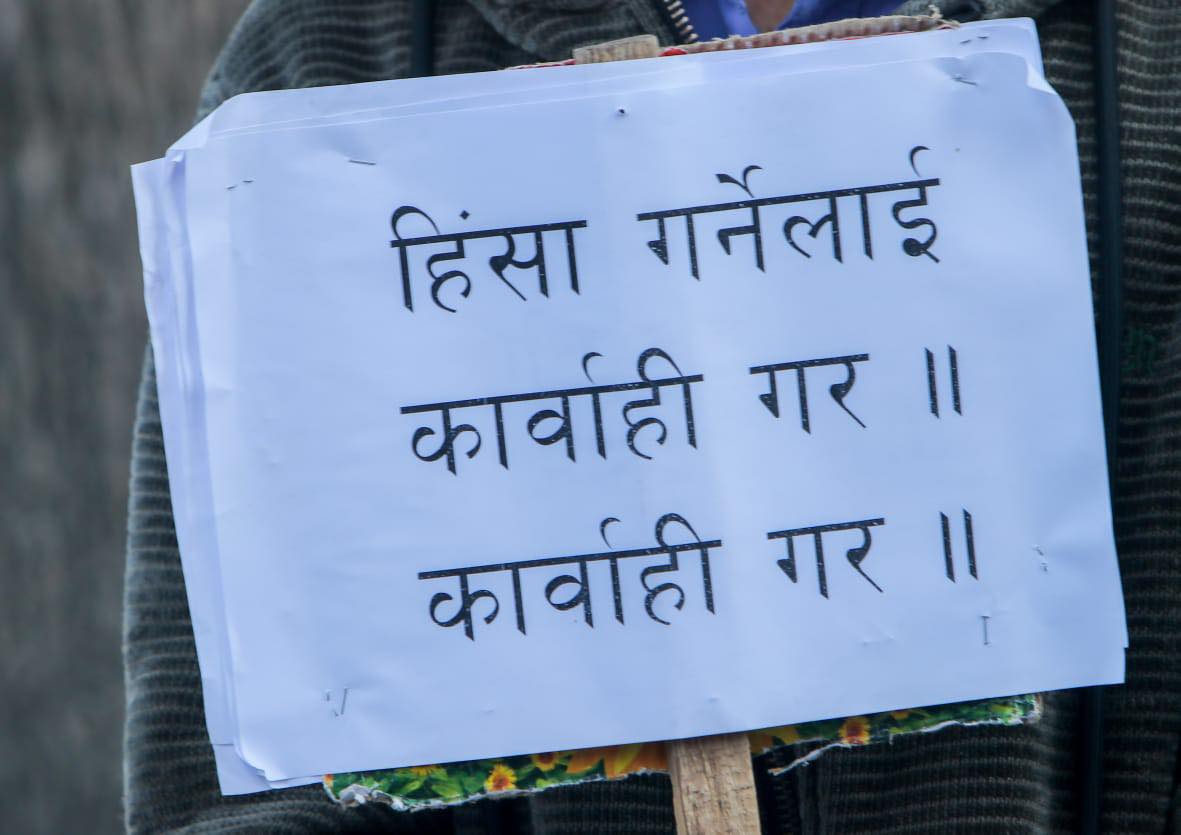 हिंसा गर्नेलाई
कार्वाही गर ॥
कार्वाही गर ॥